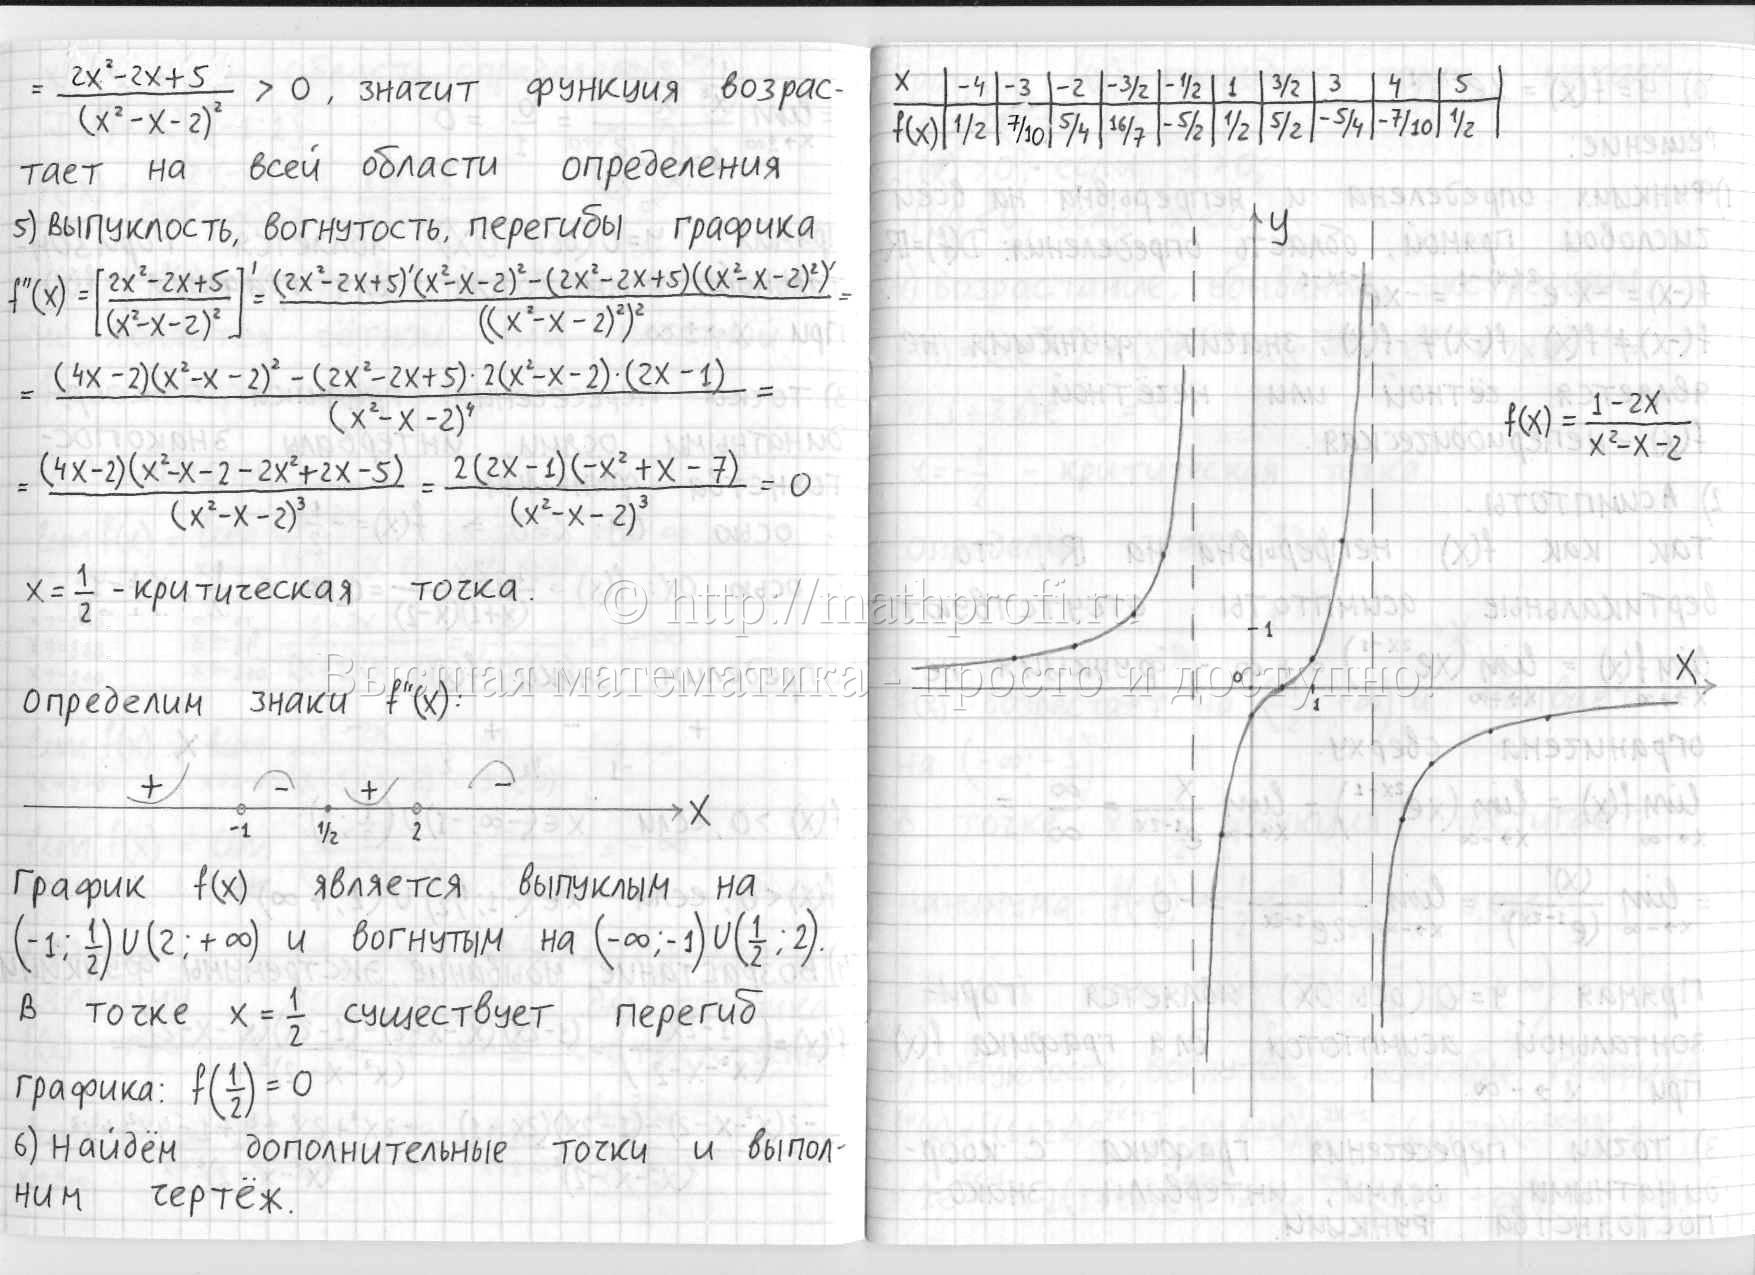 = (2x²-2x+5)/(x²-x-2)² > 0, значит функция возрас-
тает на всей области определения
5) Выпуклость, вогнутость, перегибы графика
f''(x) = [(2x²-2x+5)/(x²-x-2)²]' = ((2x²-2x+5)'(x²-x-2)²-(2x²-2x+5)((x²-x-2)²)')/((x²-x-2)²)² =
= ((4x-2)(x²-x-2)² - (2x²-2x+5)·2(x²-x-2)·(2x-1))/(x²-x-2)⁴ =
= ((4x-2)(x²-x-2-2x²+2x-5))/(x²-x-2)³ = (2(2x-1)(-x²+x-7))/(x²-x-2)³ = 0
x = 1/2 - критическая точка.
Определим знаки f''(x):
+ - + -
-1 1/2 2 X
График f(x) является выпуклым на
(-1; 1/2) U (2; +∞) и вогнутым на (-∞; -1) U (1/2; 2).
В точке x = 1/2 существует перегиб
графика: f(1/2) = 0
6) Найдём дополнительные точки и выпол-
ним чертёж.
x -4 -3 -2 -3/2 -1/2 1 3/2 3 4 5
f(x) 1/2 7/10 5/4 16/7 -5/2 1/2 5/2 -5/4 -7/10 1/2
y
f(x) = (1-2x)/(x²-x-2)
1
0
1
X
© http://mathprofi.ru
Высшая математика - просто и доступно!